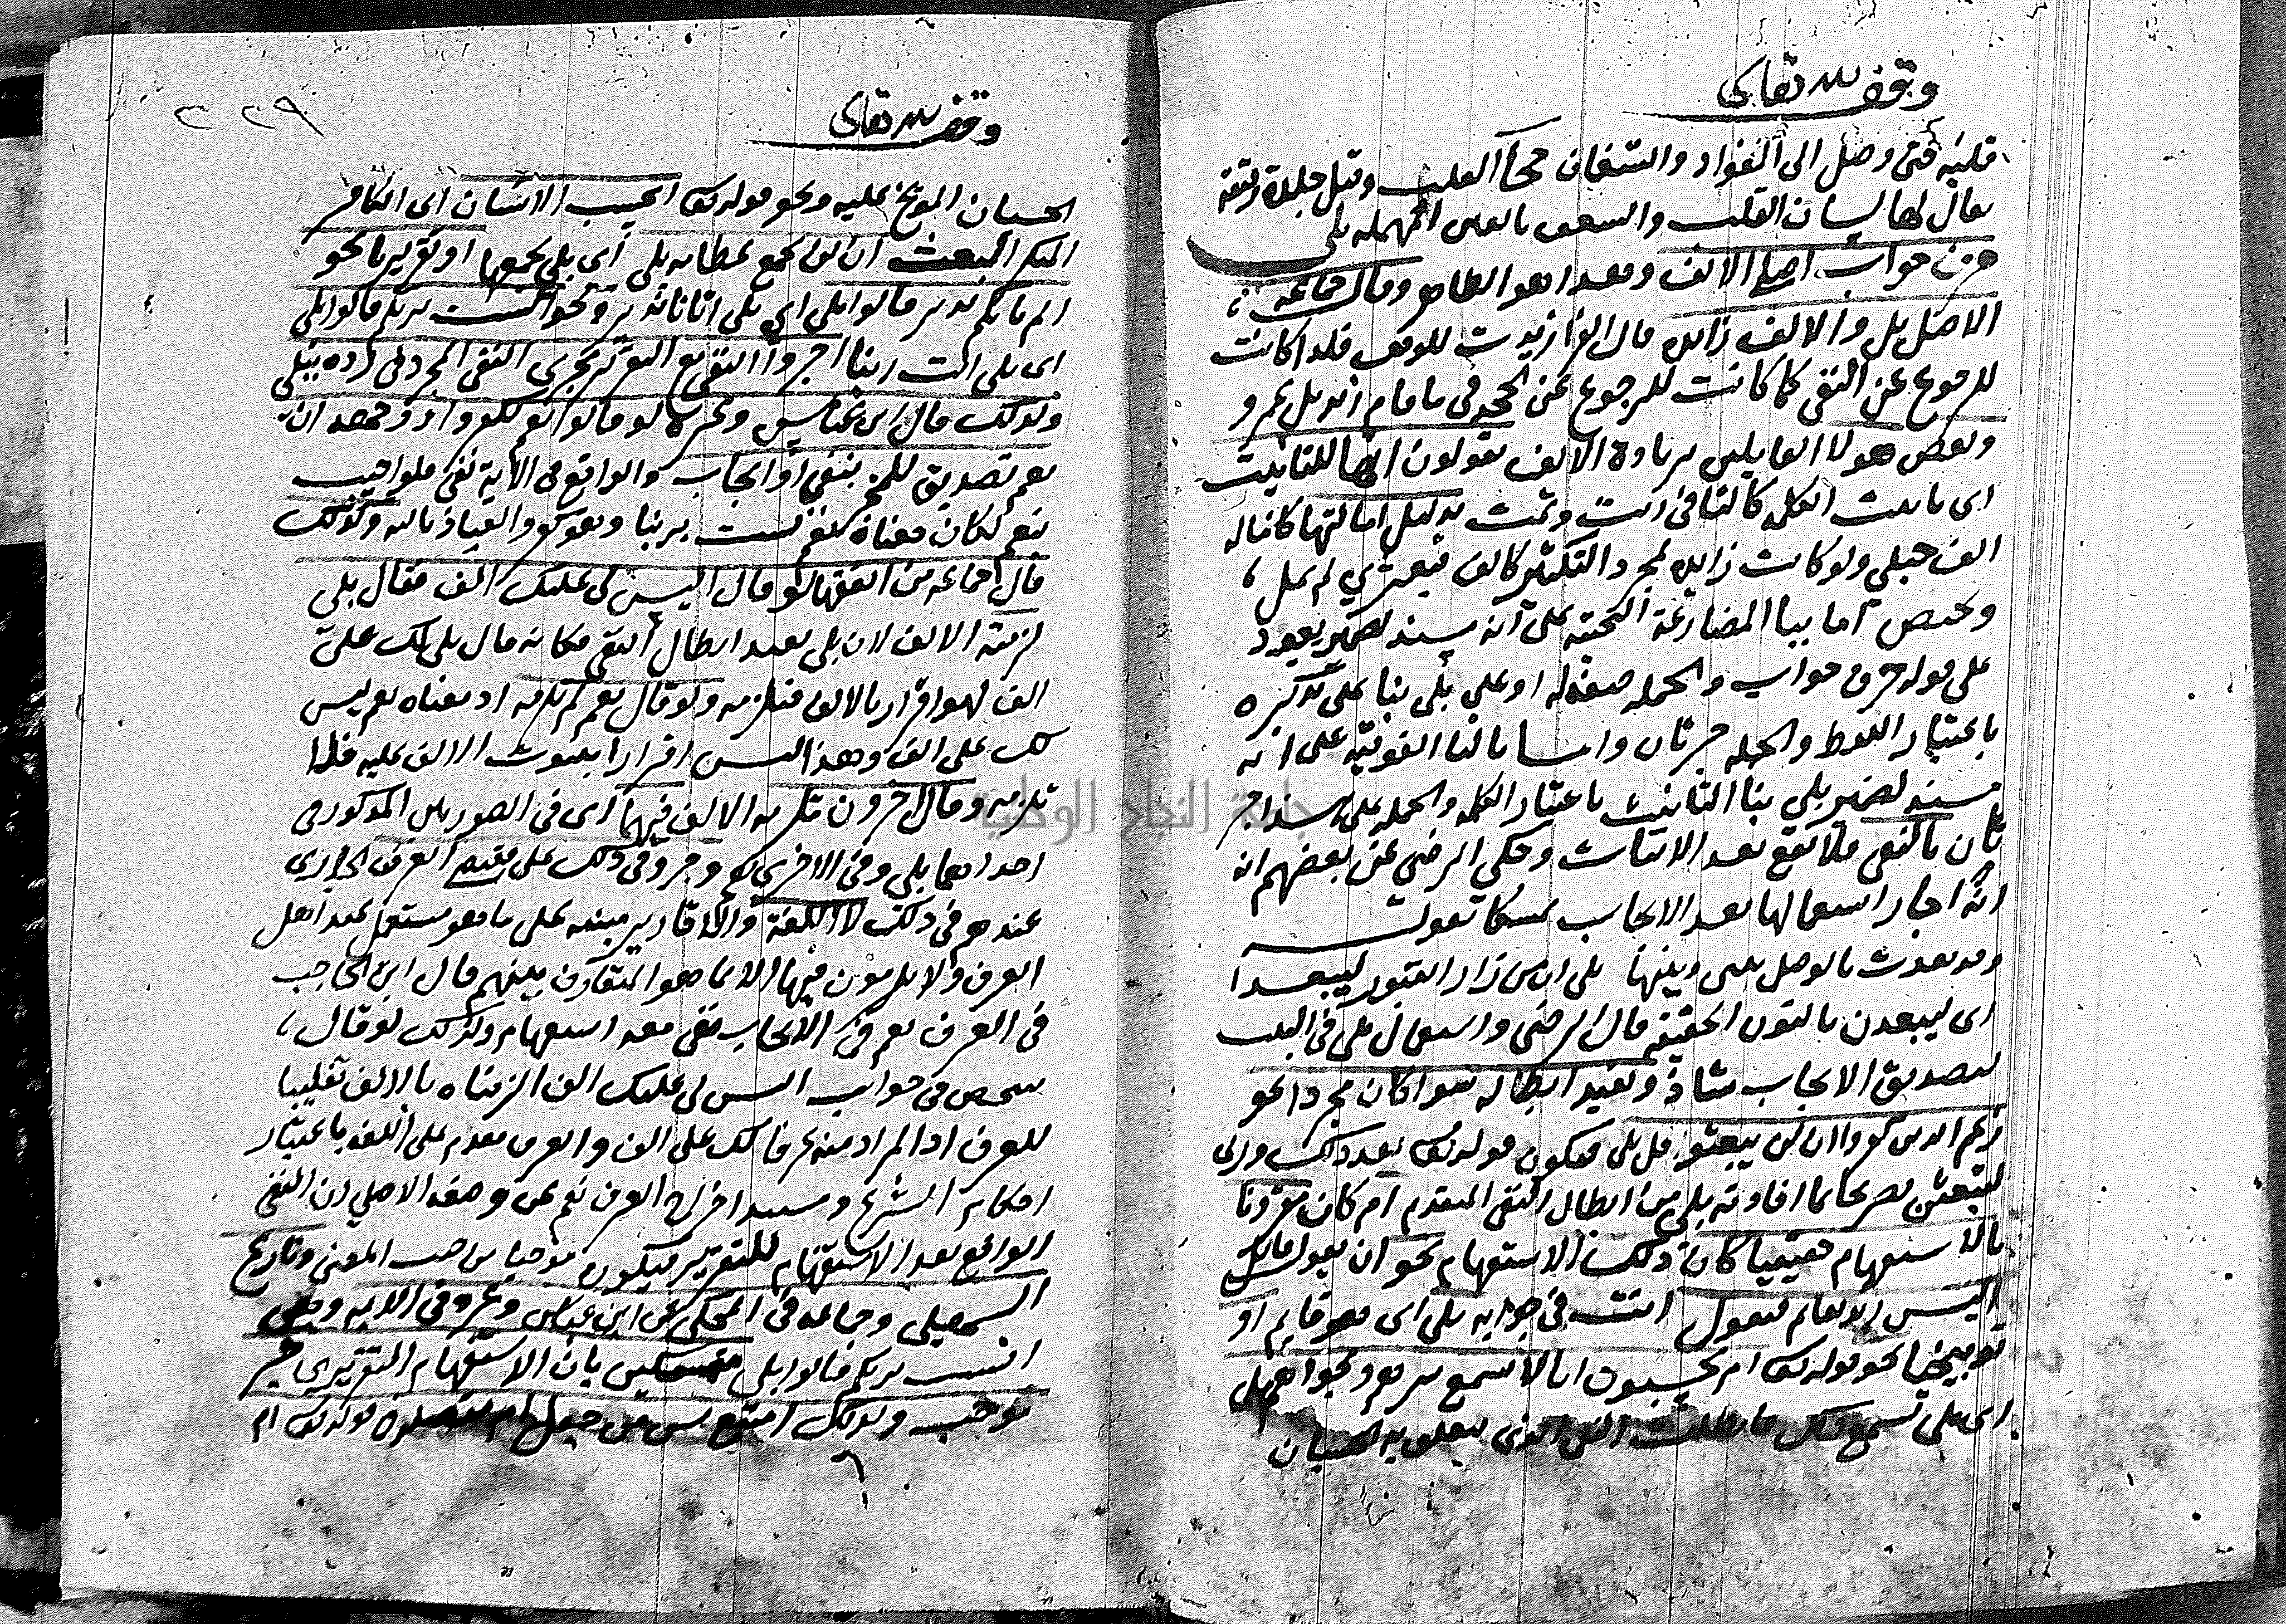 وقف لله تعالى
قلبه حتى وصل الى الفؤاد والشغاف حجاب القلب وقيل جلدة رقيقة
يقال لها لسان القلب والشعف بالعين المهملة بلى
حرف جواب اصلي الالف وهذا هو الظاهر وقال جماعة
الاصل بل والالف زايدة قال الفرا زيدت للوقف فلذا كانت
للرجوع عن النفي كما كانت للرجوع عن الجحد في ما قام زيد بل عمرو
وبعض هولا القايلين بزيادة الالف يقولون انها للتانيث
اى تانيث الكلمة كالتا في ربت وثمت بدليل امالتها كاماله
الف حبلى ولو كانت زايدة لمجرد التكثير كالف قبعثرى لم تمل
وتختص اما بيا المضارعة التحتية على انه مسند لضمير يعود
على قوله حرف جواب والجملة صفة له او على بلى بنا على تذكيره
باعتبار اللفظ والجملة خبر ثان واما بالتا الفوقية على انه
مسند لضمير بلى بنا التانيث باعتبار الكلمة والجملة على خبر
ثان بالنفي فلا تقع بعد الاثبات وحكى الرضي عن بعضهم انه
انه اجاز استعمالها بعد الايجاب تمسكا بقوله
وقد بعدت بالوصل بيني وبينها بلى ان من زار القبور ليبعدا
اى ليبعدن بالنون الخفيفة قال الرضي واستعمال بلى في البيت
لتصديق الايجاب شاذ وتفيد ابطاله سوا كان مجردا نحو
زعم الذين كفروا ان لن يبعثوا قل بلى فيكون قوله تعالى بعد ذلك وربي
لتبعثن تصريحا بما افادته بلى من ابطال النفي المتقدم ام كان مقرونا
بالاستفهام حقيقيا كان ذلك الاستفهام نحو ان يقول قائل
اليس زيد بقايم فتقول انت في جوابه بلى اى هو قايم او
توبيخيا نحو قوله تعالى ام يحسبون انا لا نسمع سرهم ونجواهم بلى
اى بلى نسمع ذلك فابطلت النفي الذي تعلق به الحسبان
٢٢٩
وقف لله تعالى
الحسبان الموبخ عليه ونحو قوله تعالى ايحسب الانسان اى الكافر
المنكر البعث ان لن نجمع عظامه بلى اى بلى نجمعها او تقريريا نحو
الم ياتكم نذير قالوا بلى اى بلى اتانا نذير ونحو الست بربكم قالوا بلى
اى بلى انت ربنا اجروا النفي مع التقرير مجرى النفي المجرد في رده ببلى
ولذلك قال ابن عباس وغيره لو قالوا نعم لكفروا ووجهه ان
نعم تصديق للمخبر بنفي او ايجاب والواقع في الاية نفي فلو اجيب
بنعم لكان معناه نعم لست بربنا وهو كفر والعياذ بالله وكذلك
قال جماعة من الفقها لو قال اليس لي عليك الف فقال بلى
لزمته الالف لان بلى تفيد ابطال النفي فكانه قال بلى لك علي
الف فهو اقرار بالالف فتلزمه ولو قال نعم لم تلزمه اذ معناه نعم ليس
لك علي الف وهذا ليس اقرارا بثبوت الالف عليه فلا
تلزمه وقال اخرون تلزمه الالف فيها اى في الصورتين المذكورتين
احداهما بلى وفي الاخرى نعم وجروا في ذلك على مقتضى العرف الجارى
عندهم في ذلك لا اللغة والاقارير مبنية على ما هو مستعمل عند اهل
العرف ولا يلزمون فيها الا بما هو المتعارف بينهم قال ابن الحاجب
في العرف نعم في الايجاب نفي بعد استفهام ولذلك لو قال
شخص في جواب اليس لي عليك الف الزمناه بالالف تغليبا
للعرف اذ المراد منه عرفا لك علي الف والعرف مقدم على اللغة باعتبار
احكام الشرع ومستند اخراج العرف نعم عن وضعه الاصلي ان النفي
الواقع بعد الاستفهام للتقرير فيكون موجبا من حيث المعنى ونازع
السهيلي وجماعة في المحكي عن ابن عباس وغيره في الاية وهي
الست بربكم قالوا بلى متمسكين بان الاستفهام التقريري خبر
موجب ولذلك امتنع سيبويه من جعل ام متصلة في قوله تعالى ام